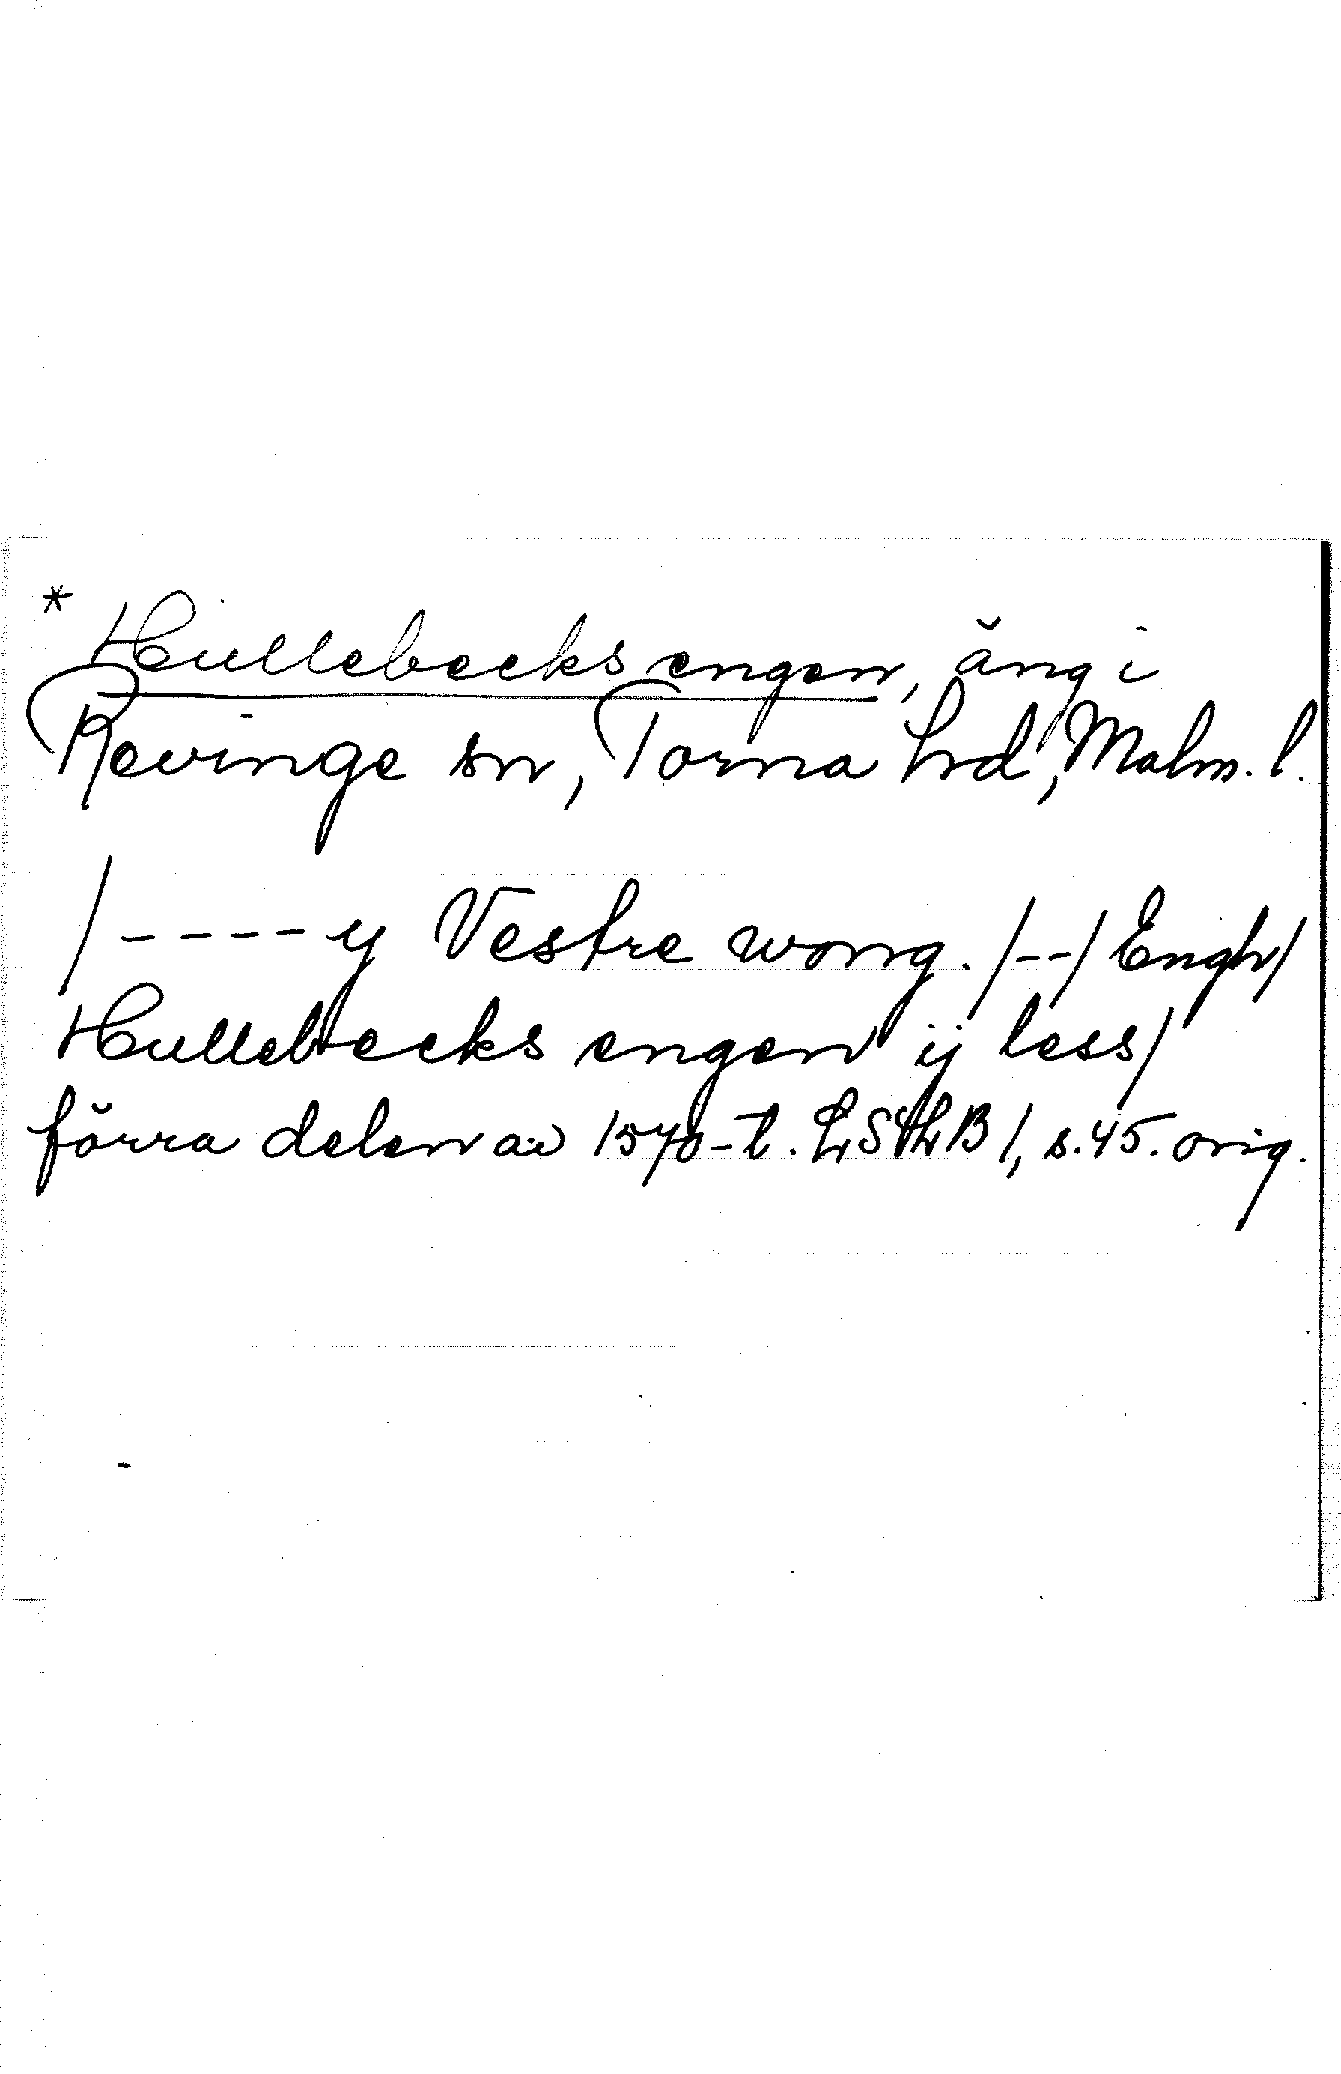 * Hullebecks engen, äng i
Revinge sn, Torna hrd, Malm. l.
/----y Vestre wong. /--/ Engh/
Hullebecks engen ij less/
förra delen av 1570-t. LSthLB 1, s. 45. orig.